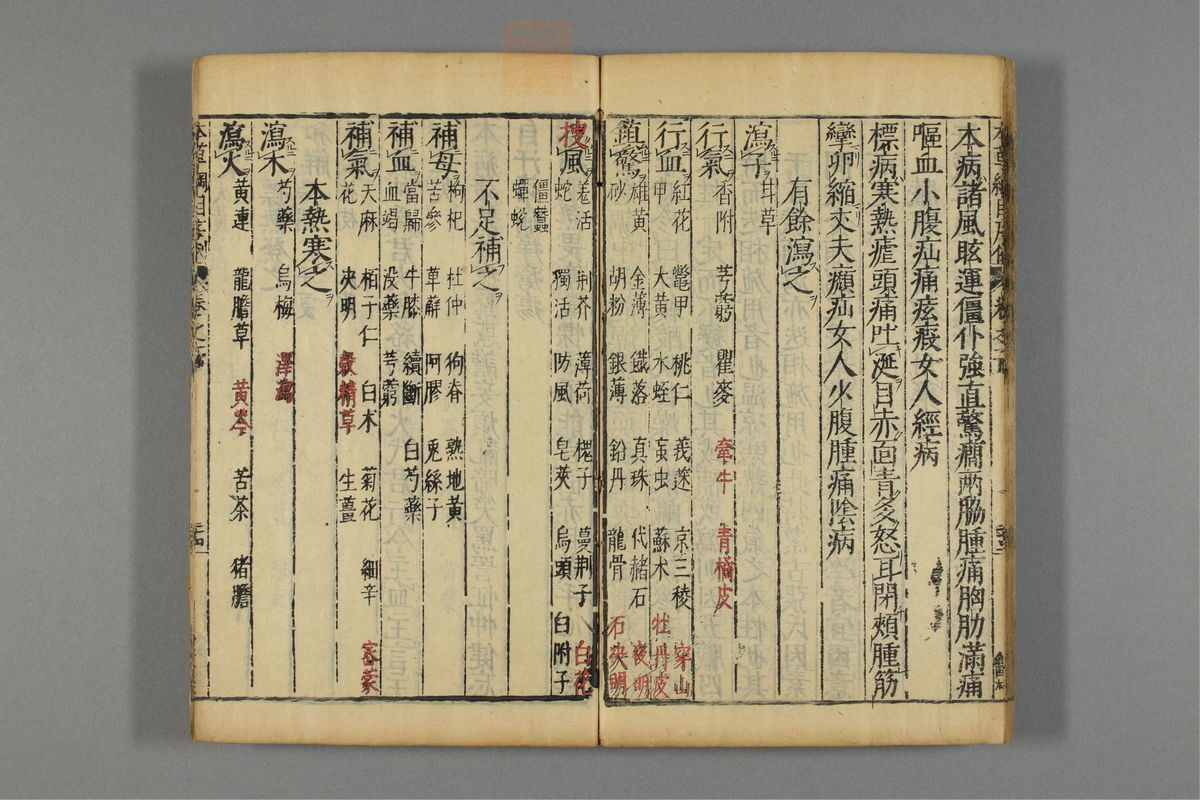 本病諸風眩運僵仆強直驚癇兩脇腫痛胸肋滿痛
嘔血小腹疝痛痃瘕女人經病
標病寒熱瘧頭痛吐涎目赤面青多怒耳閉頰腫筋
攣卵縮丈夫癩疝女人少腹腫痛陰病
有餘瀉之
瀉子 甘草
行氣 香附 芎藭 瞿麥 牽牛 青橘皮
行血 紅花 鱉甲 桃仁 莪蒁 京三棱 穿山
甲 大黃 水蛭 䖟虫 蘇木 牡丹皮
鎮驚 雄黃 金薄 鐵落 真珠 代赭石 夜明
砂 胡粉 銀薄 鉛丹 龍骨 石決明
搜風 羌活 荊芥 薄荷 槐子 蔓荊子 白花
蛇 獨活 防風 皂莢 烏頭 白附子
僵蠶
蟬蛻
不足補之
補母 枸杞 杜仲 狗脊 熟地黃
苦參 萆薢 阿膠 兎絲子
補血 當歸 牛膝 續斷 白芍藥
血竭 没藥 芎藭
補氣 天麻 栢子仁 白术 菊花 細辛 密蒙
花 決明 穀精草 生薑
本熱寒之
瀉木 芍藥 烏梅 澤瀉
瀉火 黃連 龍膽草 黃芩 苦茶 猪膽